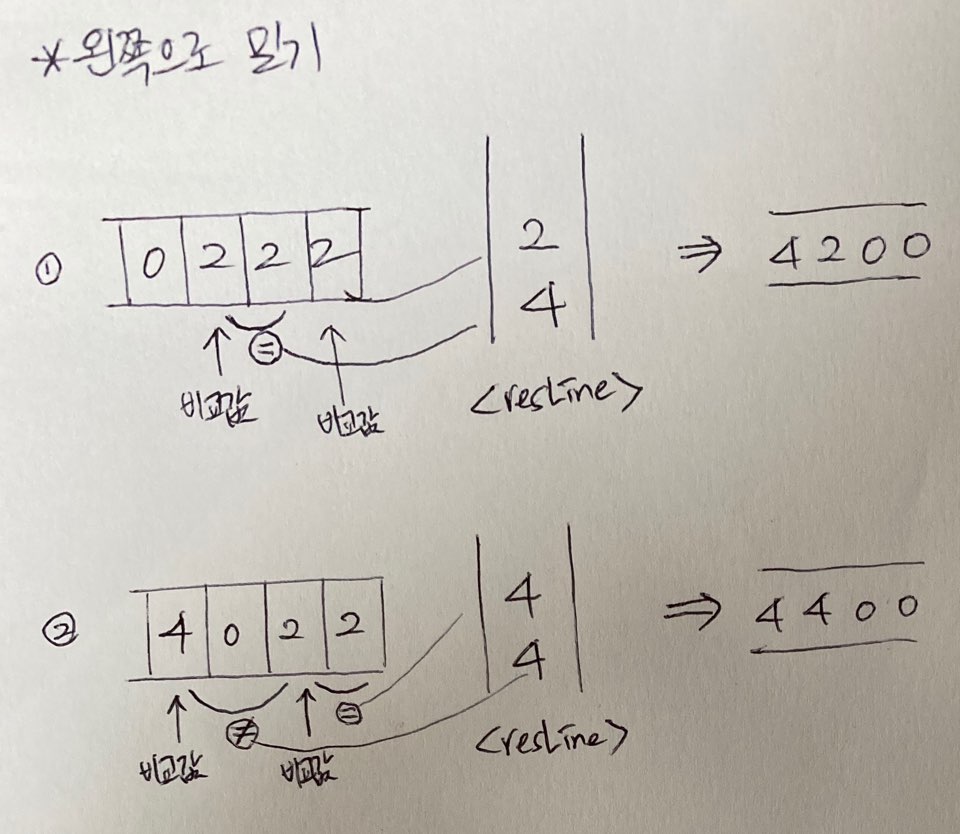 *왼쪽으로 밀기
① 0 2 2 2 2 4 ⇒ 4 2 0 0
=
비교값 비교값 <resLine>
② 4 0 2 2 4 4 ⇒ 4 4 0 0
≠ =
비교값 비교값 <resLine>